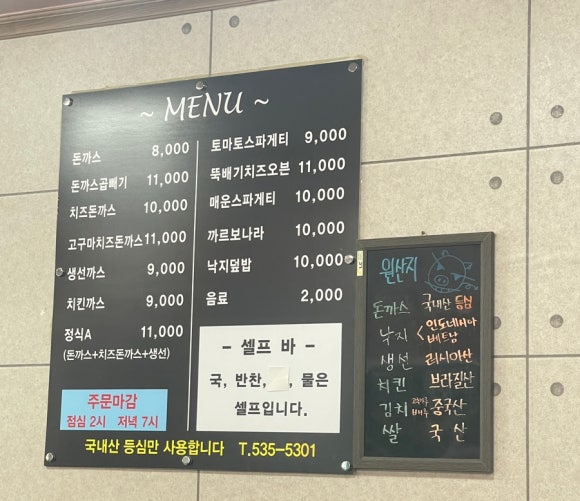 ~ MENU ~
돈까스 8,000
돈까스곱빼기 11,000
치즈돈까스 10,000
고구마치즈돈까스 11,000
생선까스 9,000
치킨까스 9,000
정식A 11,000
(돈까스+치즈돈까스+생선)
주문마감
점심 2시 저녁 7시
토마토스파게티 9,000
뚝배기치즈오븐 11,000
매운스파게티 10,000
까르보나라 10,000
낙지덮밥 10,000
음료 2,000
- 셀프 바 -
국, 반찬, , 물은
셀프입니다.
국내산 등심만 사용합니다 T.535-5301
원산지
돈까스 국내산 등심
낙지 < 인도네시아
베트남
생선 러시아산
치킨 브라질산
김치 고춧가루 배추 중국산
쌀 국산